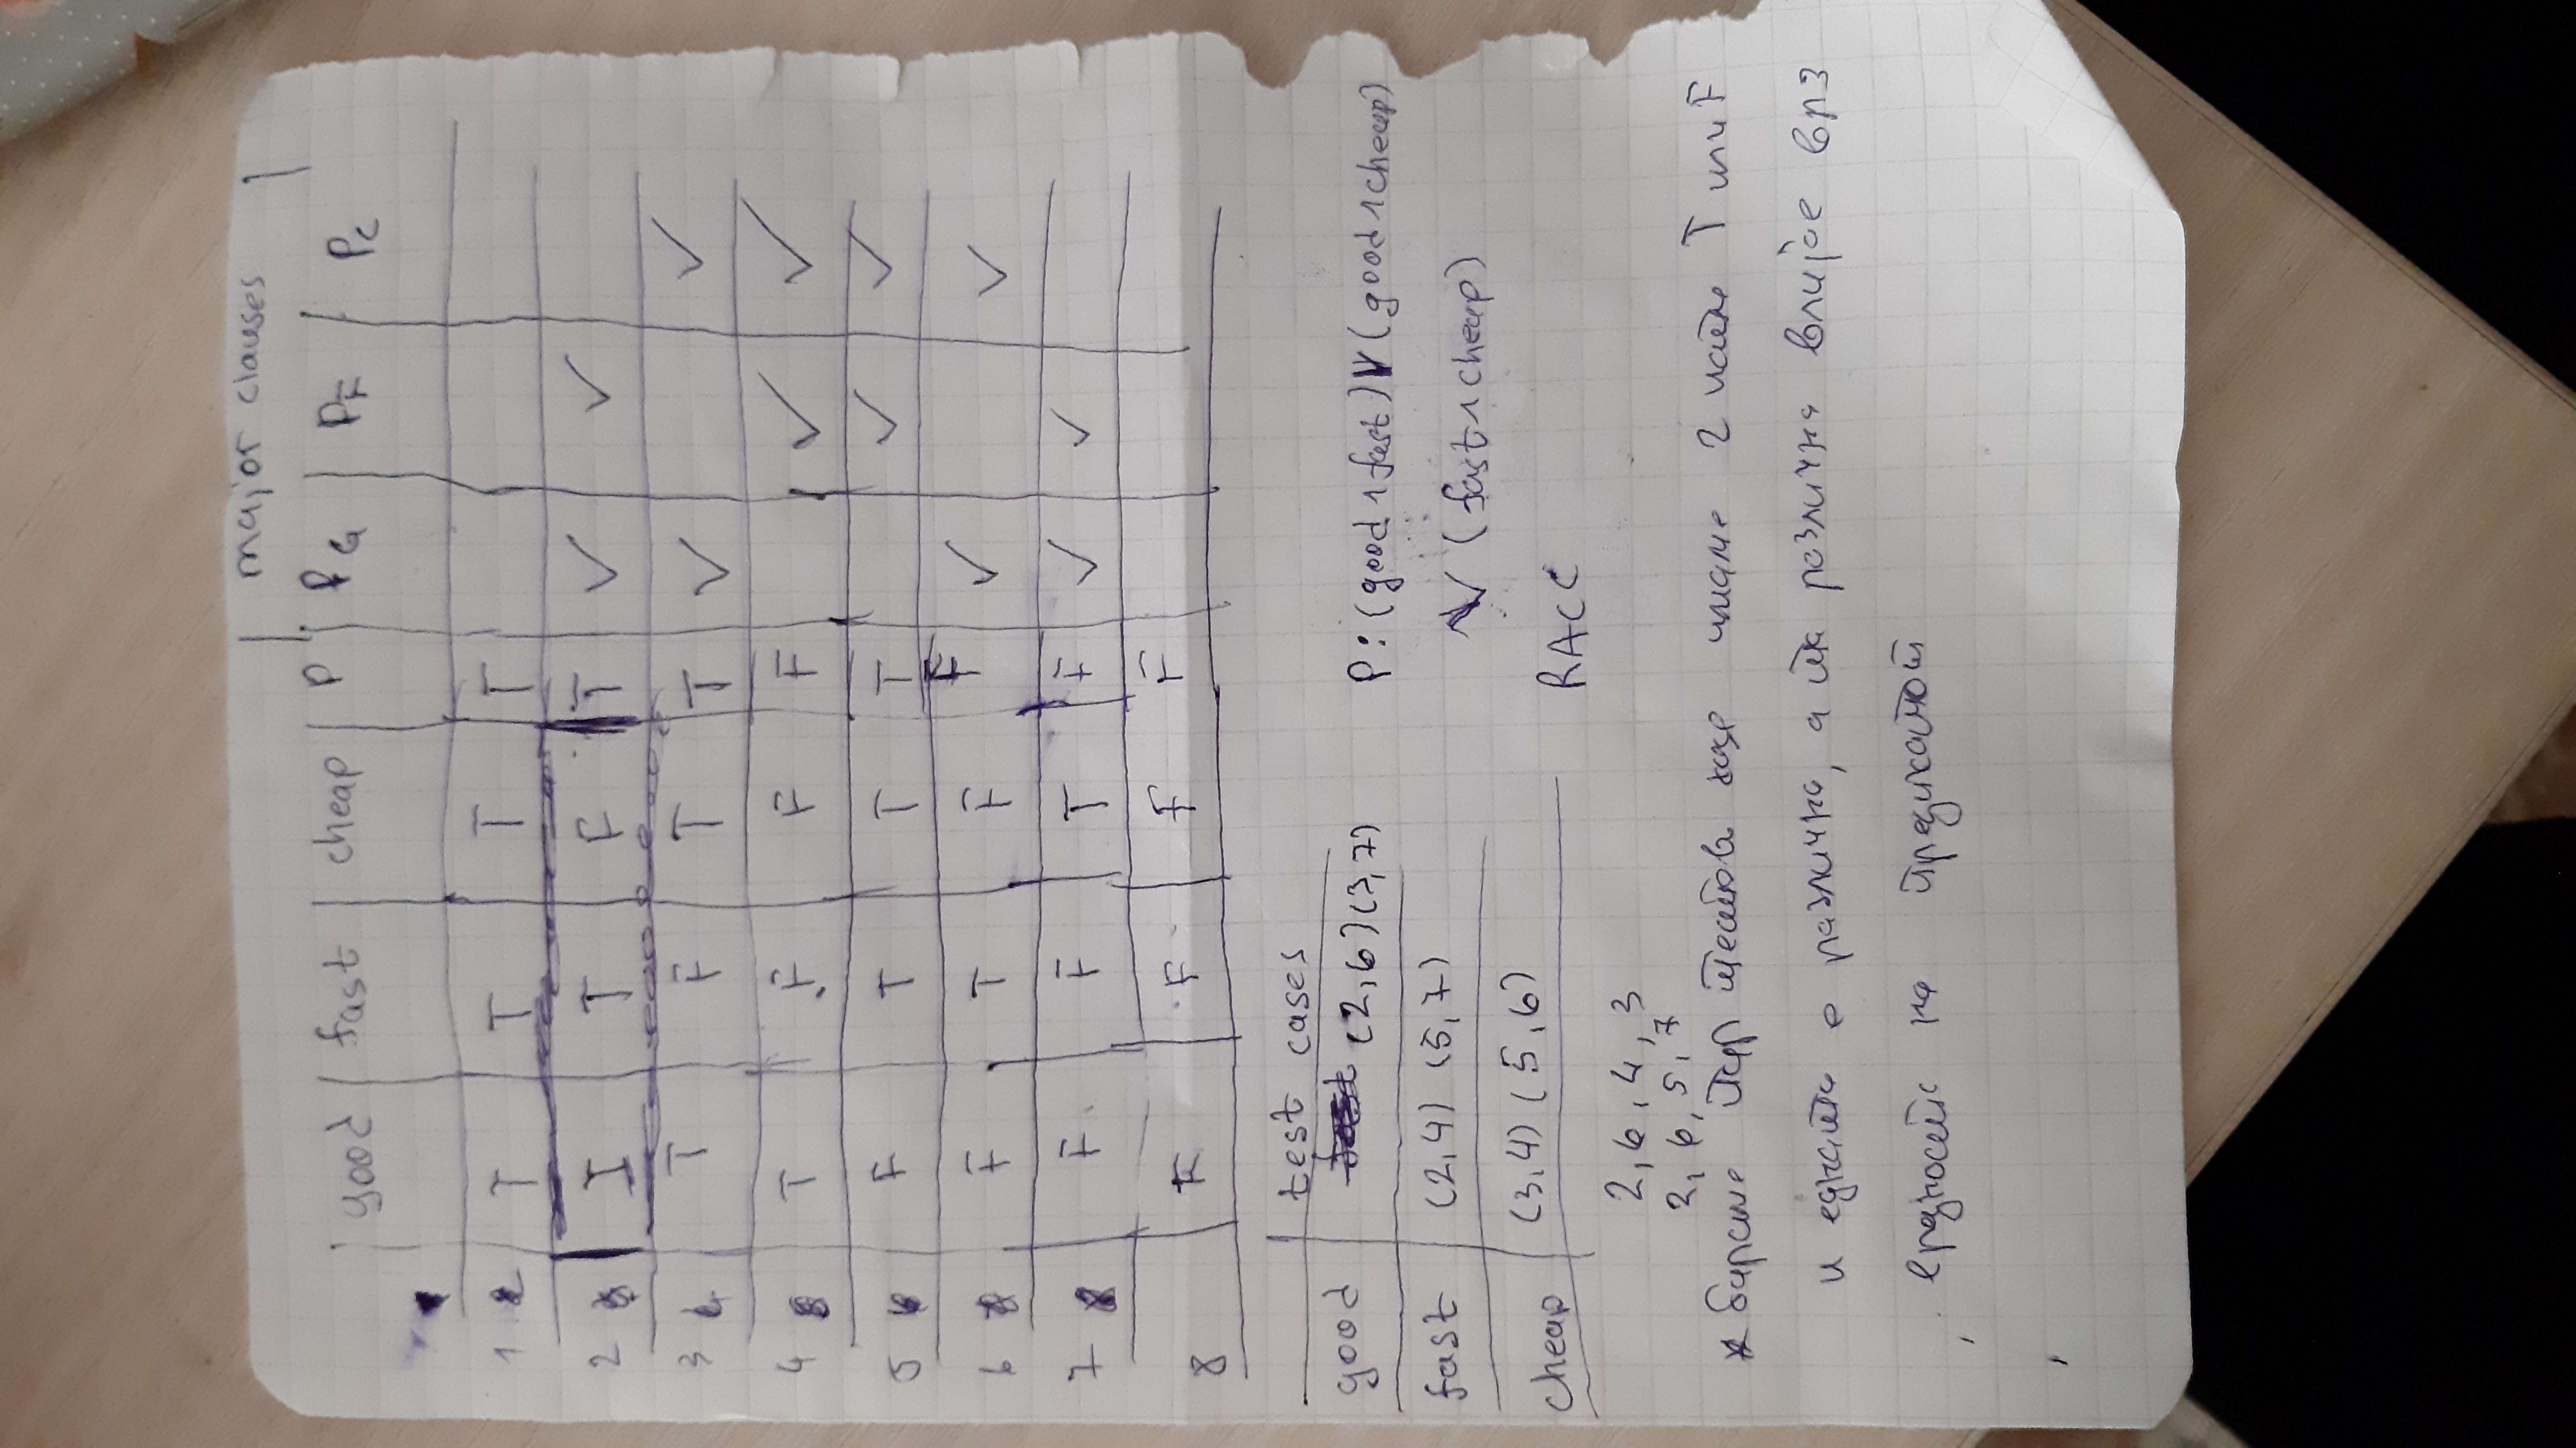 major clauses
good fast cheap P PG PF PC
1 T T T T
2 T T F T ✓ ✓
3 T F T T ✓ ✓
4 T F F F ✓ ✓
5 F T T T ✓ ✓
6 F T F F ✓ ✓
7 F F T F ✓ ✓
8 F F F F
test cases
good (2,6) (3,7)
fast (2,4) (5,7)
cheap (3,4) (5,6)
P: (good ∧ fast) V (good ∧ cheap)
V (fast ∧ cheap)
RACC
2, 6, 4, 3
2, 6, 5, 7
* бараме пар тестови каде имаме 2 исти T или F
и едната е различна, а та различна влијае врз
вредноста на предикатот